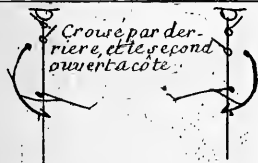 Croisé par der-
riere, et le second
ouvert a côte